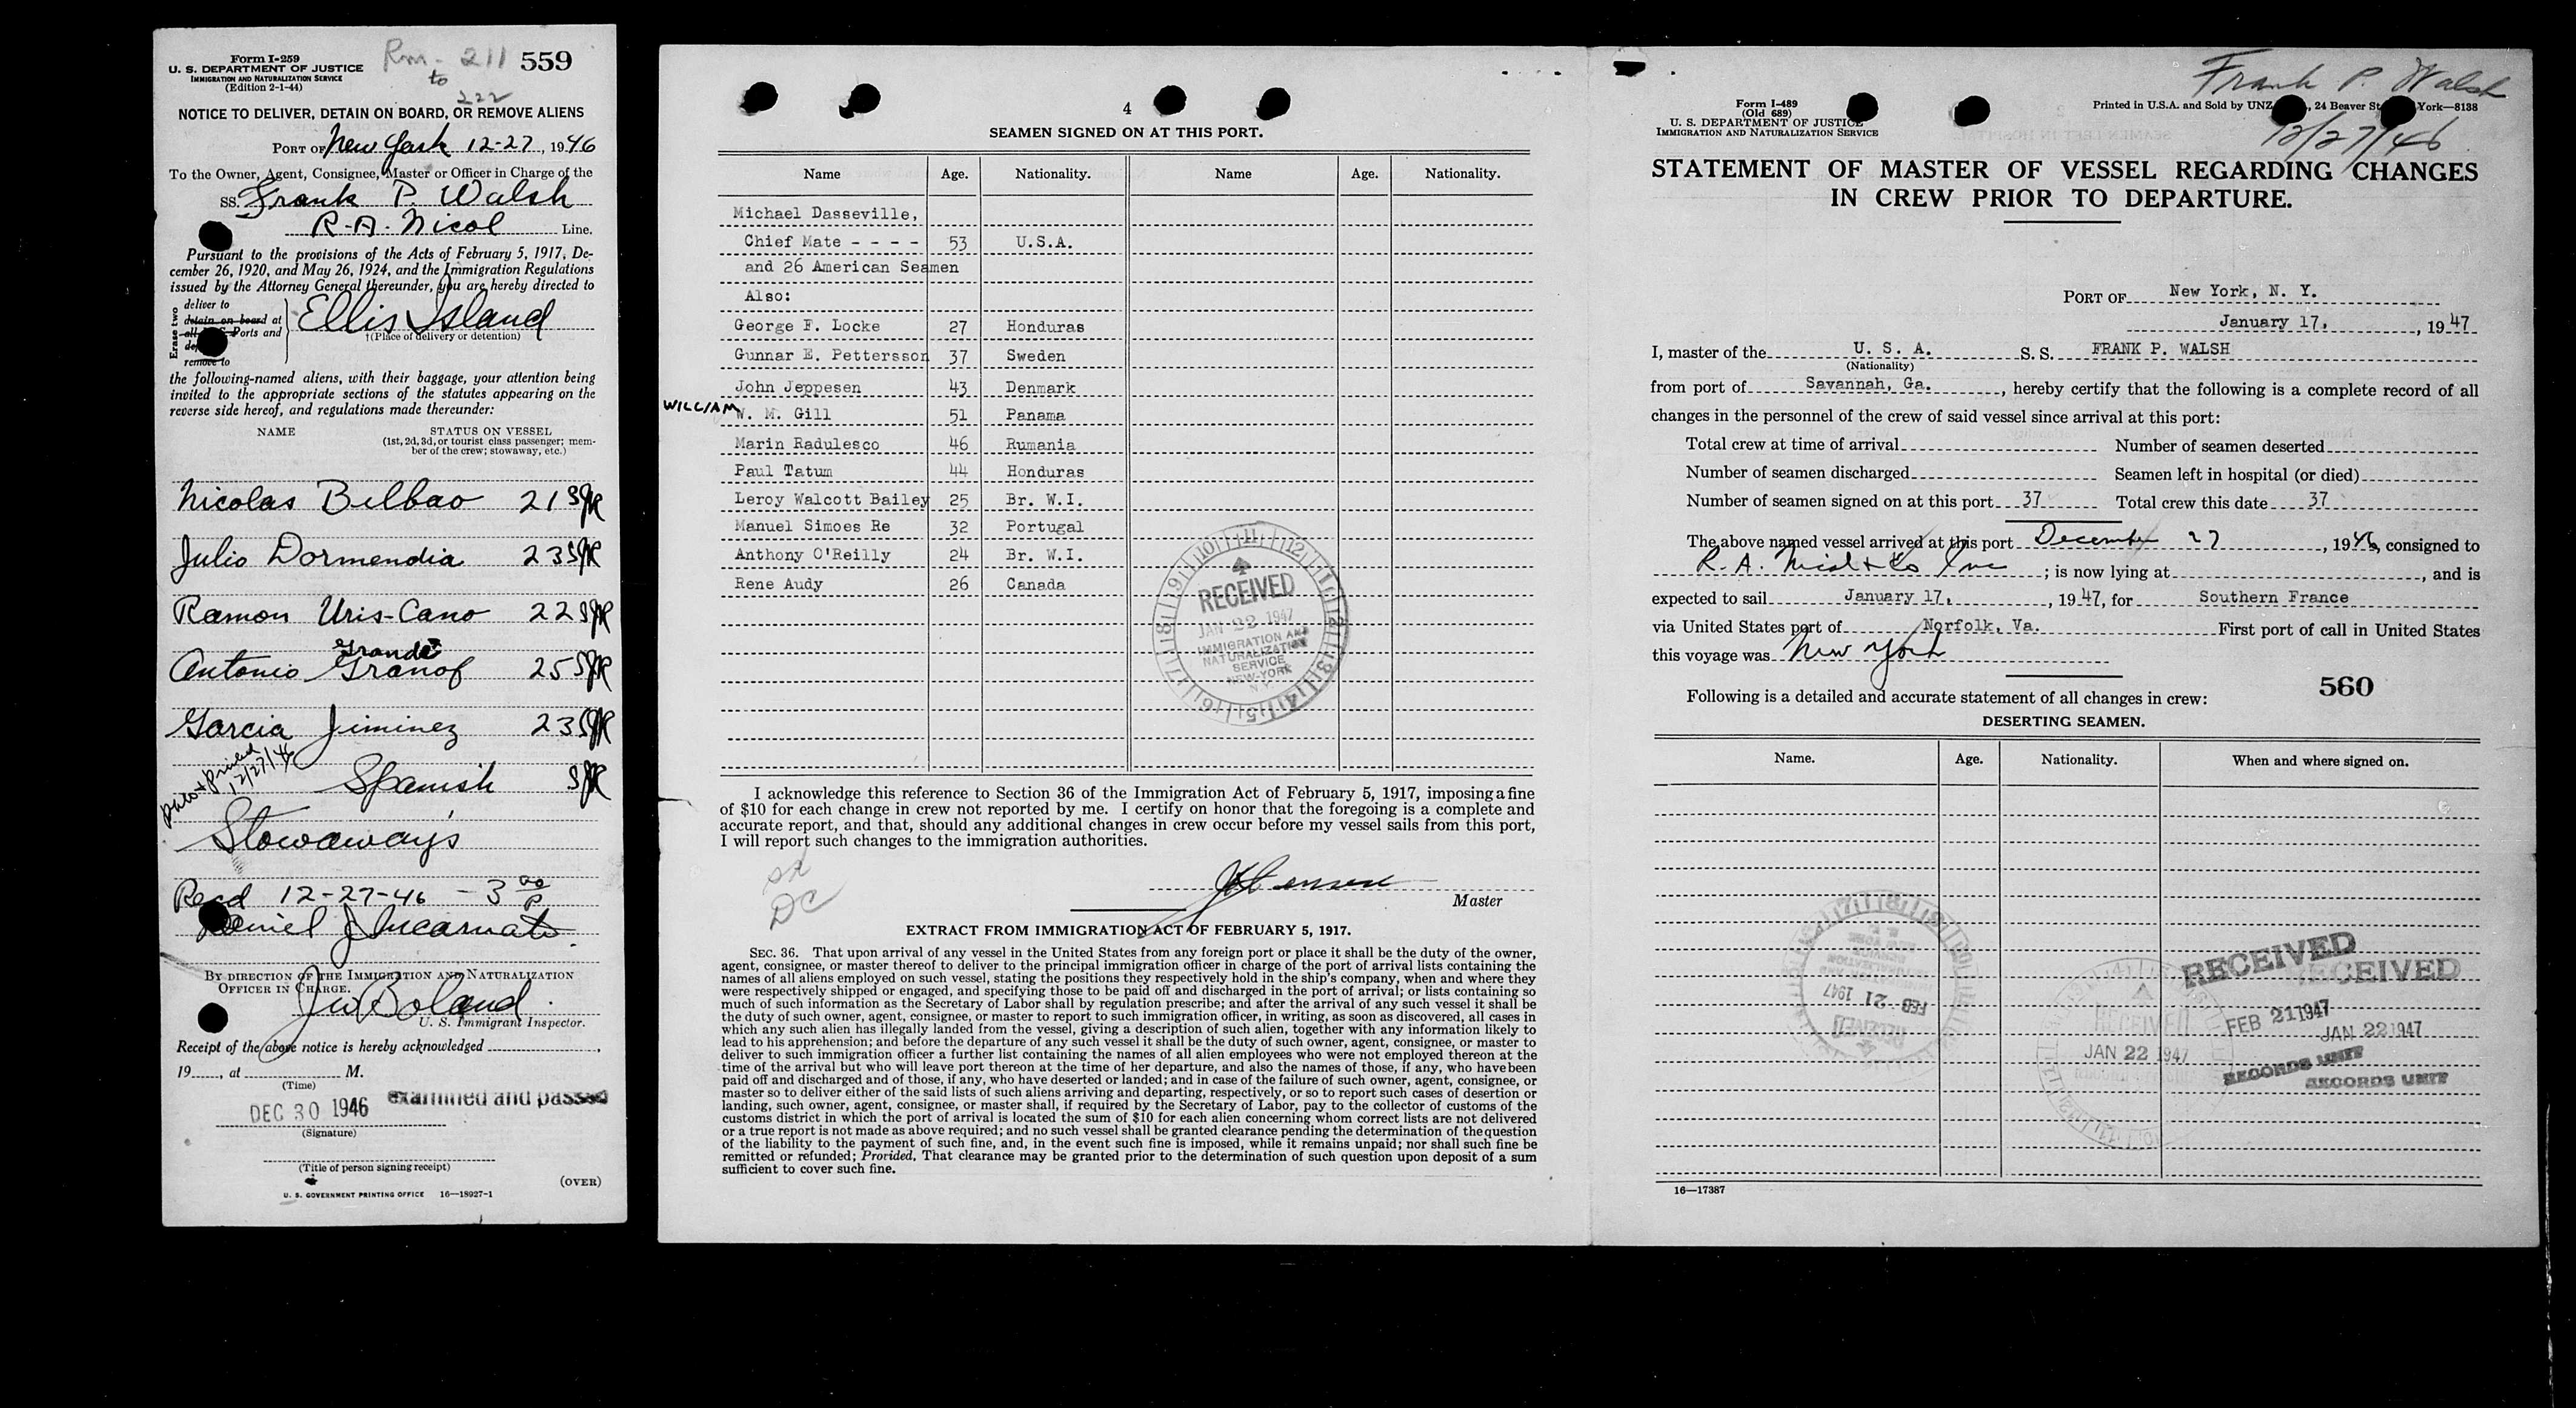 Form I-259
U. S. DEPARTMENT OF JUSTICE
IMMIGRATION AND NATURALIZATION SERVICE
(Edition 2-1-44)
Rm - 211
to
222
559
NOTICE TO DELIVER, DETAIN ON BOARD, OR REMOVE ALIENS
PORT OF New York 12-27, 1946
To the Owner, Agent, Consignee, Master or Officer in Charge of the
SS. Frank P. Walsh
R.A. Nicol Line.
Pursuant to the provisions of the Acts of February 5, 1917, De-
cember 26, 1920, and May 26, 1924, and the Immigration Regulations
issued by the Attorney General thereunder, you are hereby directed to
Erase two
deliver to
detain on board at
Ports and
remove to
Ellis Island
†(Place of delivery or detention)
the following-named aliens, with their baggage, your attention being
invited to the appropriate sections of the statutes appearing on the
reverse side hereof, and regulations made thereunder:
NAME STATUS ON VESSEL
(1st, 2d, 3d, or tourist class passenger; mem-
ber of the crew; stowaway, etc.)
Nicolas Bilbao 21
Julio Dormendia 23
Ramon Uris-Cano 22
Grande
Antonio Granof 25
Garcia Jiminez 23
12/27/46
Spanish
Stowaways
Recd 12-27-46 - 3 00 P
Daniel J Incarnato
BY DIRECTION OF THE IMMIGRATION AND NATURALIZATION
OFFICER IN CHARGE.
JW Boland
U. S. Immigrant Inspector.
Receipt of the above notice is hereby acknowledged
19, at M.
(Time)
DEC 30 1946 examined and passed
(Signature)
(Title of person signing receipt)
(OVER)
U. S. GOVERNMENT PRINTING OFFICE 16—18927-1
4
SEAMEN SIGNED ON AT THIS PORT.
Name Age. Nationality. Name Age. Nationality.
Michael Dasseville,
Chief Mate - - - - 53 U.S.A.
and 26 American Seamen
Also:
George F. Locke 27 Honduras
Gunnar E. Pettersson 37 Sweden
John Jeppesen 43 Denmark
WILLIAM W. M. Gill 51 Panama
Marin Radulesco 46 Rumania
Paul Tatum 44 Honduras
Leroy Walcott Bailey 25 Br. W.I.
Manuel Simoes Re 32 Portugal
Anthony O'Reilly 24 Br. W.I.
Rene Audy 26 Canada
RECEIVED
JAN 22 1947
IMMIGRATION AND
NATURALIZATION
SERVICE
NEW-YORK
N.Y.
I acknowledge this reference to Section 36 of the Immigration Act of February 5, 1917, imposing a fine
of $10 for each change in crew not reported by me. I certify on honor that the foregoing is a complete and
accurate report, and that, should any additional changes in crew occur before my vessel sails from this port,
I will report such changes to the immigration authorities.
DC
Master
EXTRACT FROM IMMIGRATION ACT OF FEBRUARY 5, 1917.
SEC. 36. That upon arrival of any vessel in the United States from any foreign port or place it shall be the duty of the owner,
agent, consignee, or master thereof to deliver to the principal immigration officer in charge of the port of arrival lists containing the
names of all aliens employed on such vessel, stating the positions they respectively hold in the ship's company, when and where they
were respectively shipped or engaged, and specifying those to be paid off and discharged in the port of arrival; or lists containing so
much of such information as the Secretary of Labor shall by regulation prescribe; and after the arrival of any such vessel it shall be
the duty of such owner, agent, consignee, or master to report to such immigration officer, in writing, as soon as discovered, all cases in
which any such alien has illegally landed from the vessel, giving a description of such alien, together with any information likely to
lead to his apprehension; and before the departure of any such vessel it shall be the duty of such owner, agent, consignee, or master to
deliver to such immigration officer a further list containing the names of all alien employees who were not employed thereon at the
time of the arrival but who will leave port thereon at the time of her departure, and also the names of those, if any, who have been
paid off and discharged and of those, if any, who have deserted or landed; and in case of the failure of such owner, agent, consignee, or
master so to deliver either of the said lists of such aliens arriving and departing, respectively, or so to report such cases of desertion or
landing, such owner, agent, consignee, or master shall, if required by the Secretary of Labor, pay to the collector of customs of the
customs district in which the port of arrival is located the sum of $10 for each alien concerning whom correct lists are not delivered
or a true report is not made as above required; and no such vessel shall be granted clearance pending the determination of the question
of the liability to the payment of such fine, and, in the event such fine is imposed, while it remains unpaid; nor shall such fine be
remitted or refunded; Provided, That clearance may be granted prior to the determination of such question upon deposit of a sum
sufficient to cover such fine.
Frank P. Walsh
12/27/46
Form I-489
(Old 689)
U. S. DEPARTMENT OF JUSTICE
IMMIGRATION AND NATURALIZATION SERVICE
Printed in U.S.A. and Sold by UNZ, 24 Beaver St York—8138
STATEMENT OF MASTER OF VESSEL REGARDING CHANGES
IN CREW PRIOR TO DEPARTURE.
PORT OF New York, N. Y.
January 17, , 1947
I, master of the U. S. A. S. S. FRANK P. WALSH
(Nationality)
from port of Savannah, Ga. , hereby certify that the following is a complete record of all
changes in the personnel of the crew of said vessel since arrival at this port:
Total crew at time of arrival Number of seamen deserted
Number of seamen discharged Seamen left in hospital (or died)
Number of seamen signed on at this port 37 Total crew this date 37
The above named vessel arrived at this port December 27, 1946, consigned to
R. A. Nicol & Co Inc ; is now lying at , and is
expected to sail January 17, , 1947, for Southern France
via United States port of Norfolk, Va. First port of call in United States
this voyage was New York
560
Following is a detailed and accurate statement of all changes in crew:
DESERTING SEAMEN.
Name. Age. Nationality. When and where signed on.
RECEIVED
FEB 21 1947
RECEIVED
JAN 22 1947
RECEIVED
FEB 21 1947
RECORDS UNIT
RECEIVED
JAN 22 1947
RECORDS UNIT
16—17387